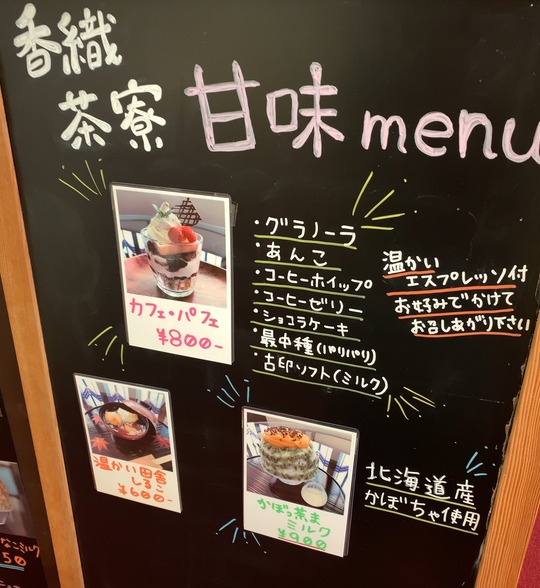 香織
茶寮
甘味 menu
カフェ・パフェ
¥800-
・グラノーラ
・あんこ
・コーヒーホイップ
・コーヒーゼリー
・ショコラケーキ
・最中種(パリパリ)
・古印ソフト(ミルク)
温かい
エスプレッソ付
お好みでかけて
お召しあがり下さい
温かい田舎
しるこ
¥600-
かぼっ茶ま
ミルク
¥900
北海道産
かぼちゃ使用
なこミルク
50